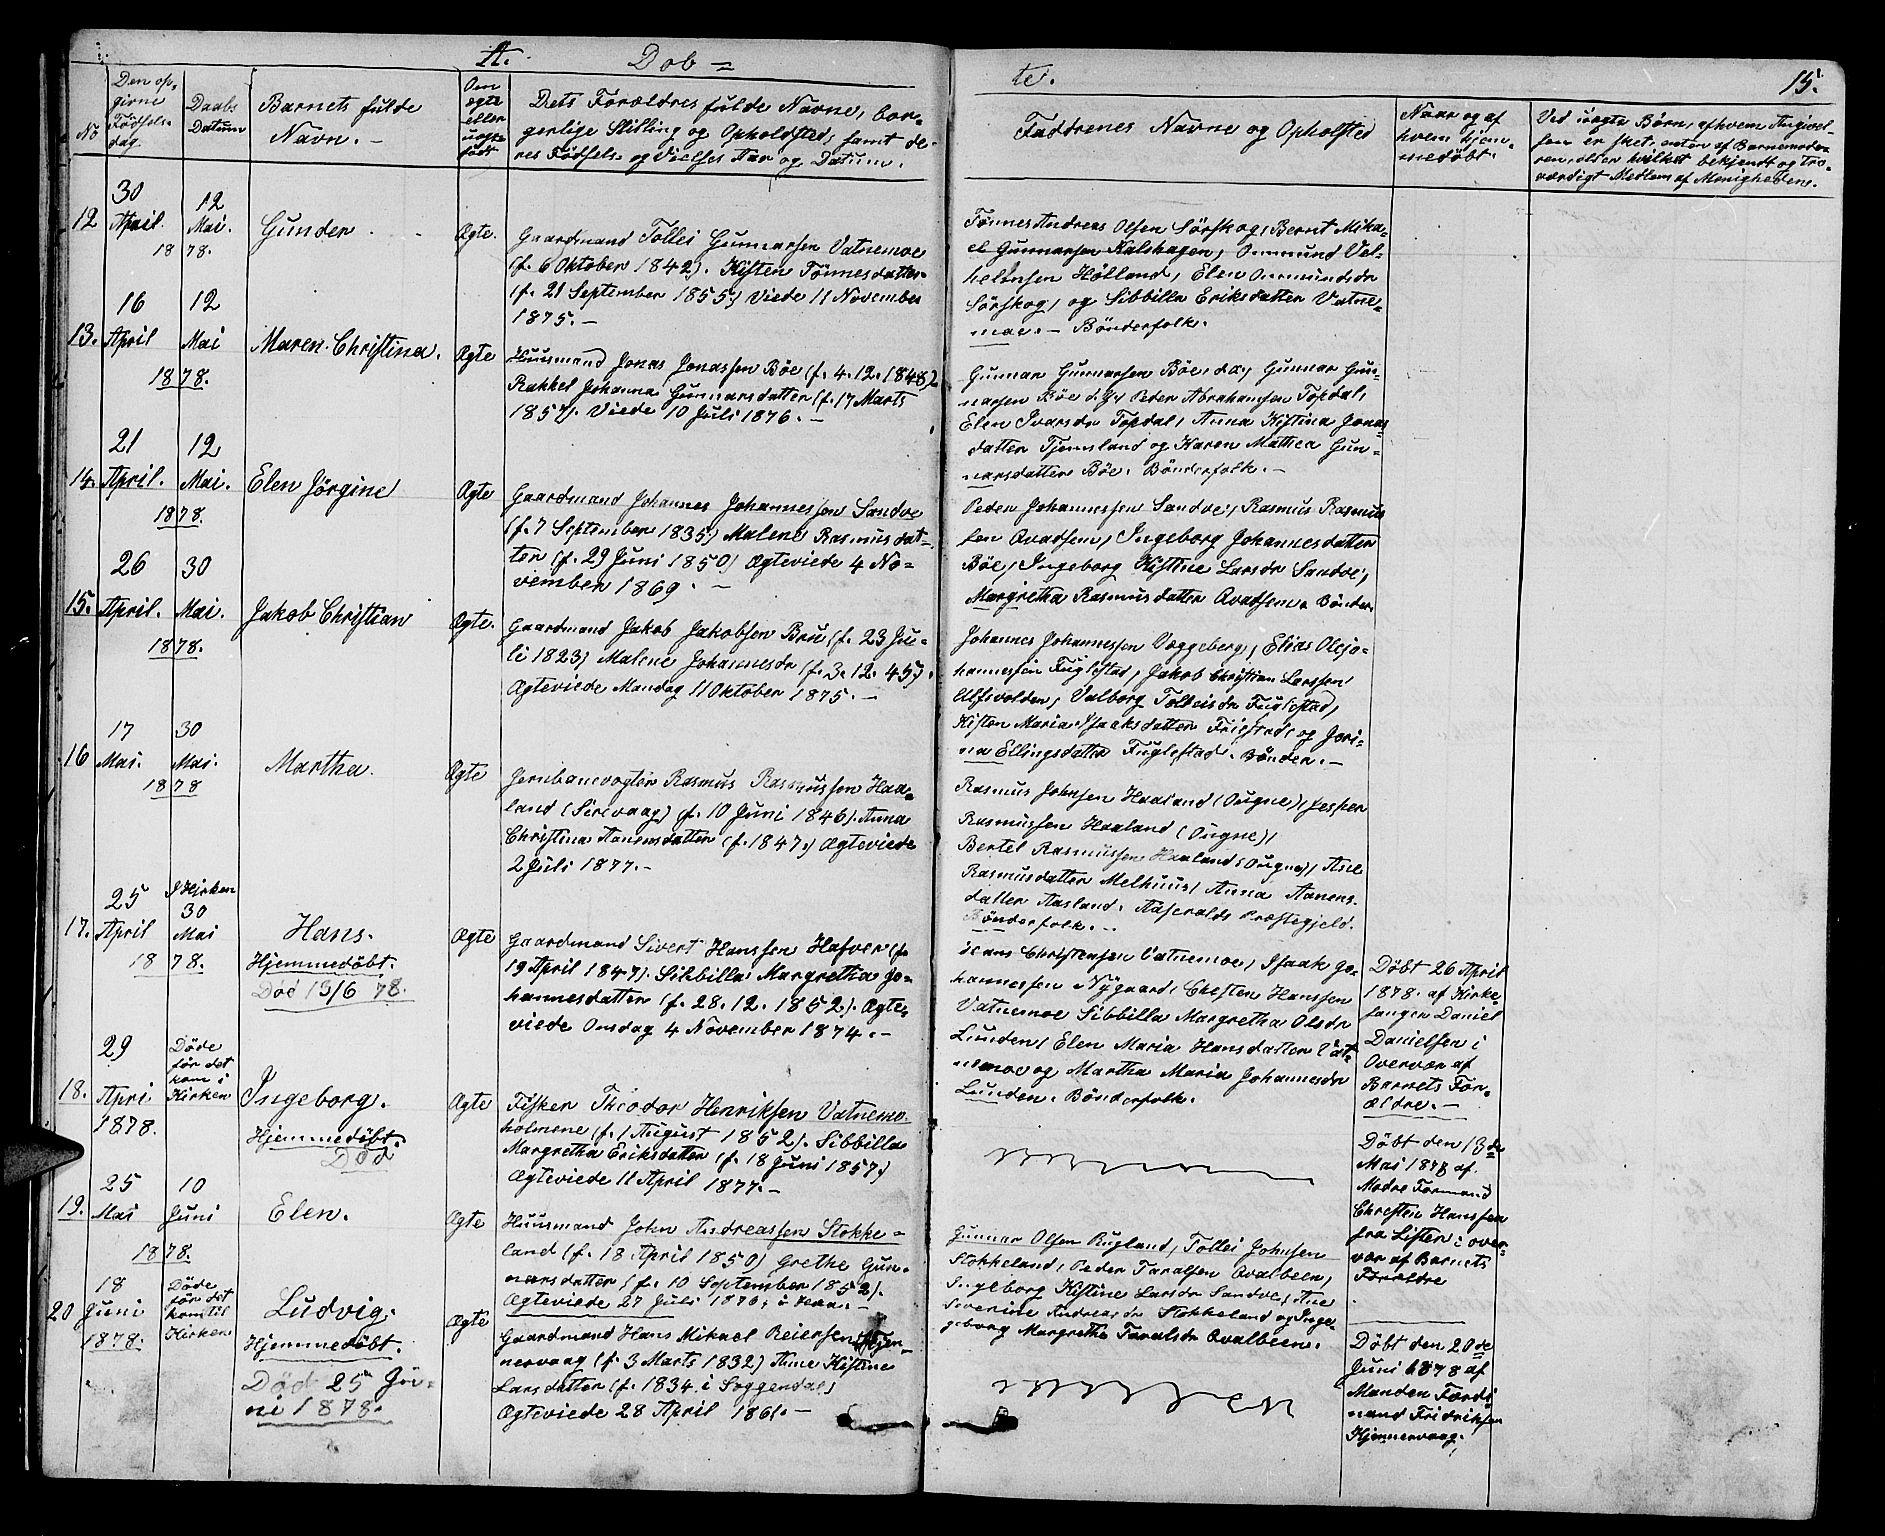 A. Døb=
te. 15.
No
Den op-
givne
Fødsels-
dag.
Daabs
Datum
Barnets fulde
Navn. —
Om
ægte
eller
uægte
født
Dets Forældres fulde Navne, bor-
gerlige Stilling og Opholdsted, samt de-
res Fødsels- og Vielses Aar og Datum.
Faddrenes Navne og Opholsted
Naar og af
hvem hjem-
medøbt.
Ved uægte Børn, af hvem Angivel-
sen er sket, enten af Barnemode-
ren, eller hvilket bekjendt og tro-
værdigt Medlem af Menigheden.
12
30
April.
12
Mai.
1878.
Gunder
Ægte.
Gaardmand Tollei Gunnarsen Vatnemoe
(f. 6 Oktober 1842). Kisten Tønnesdatter
(f. 21 September 1855) Viede 11 November
1875. —
Tønnes Andreas Olsen Sörskog, Bernt Mika-
el Gunnarsen Kalshagen, Ommund Vel-
helmsen Hølland, Elen Ommundsdr
Sörskog, og Sibbilla Eriksdatter Vatne-
moe. — Bönderfolk.
13.
16
April
12
Mai
1878.
Maren Christina.
Ægte
Huusmand Jonas Jonassen Böe (f. 4. 12. 1848)
Rakkel Johanna Gunnarsdatter (f. 17 Marts
1857). Viede 10 Juli 1876. —
Gunnar Gunnarsen Böe d. æ, Gunnar Gun-
narsen Böe d. y, Peder Abrahamsen Topdal,
Elen Ivarsdr Topdal, Anna Kistina Jonas-
datter Tjemsland og Karen Mattea Gun-
narsdatter Böe. Bönderfolk. —
14.
21
April.
12
Mai.
1878.
Elen Jörgine
Ægte
Gaardmand Johannes Johannessen Sandve
(f. 7 September 1835) Malene Rasmusdat-
ter (f. 29 Juni 1850) Ægteviede 4 No-
vember 1869. —
Peder Johannessen Sandve, Rasmus Rasmus
sen Qvadsem, Ingeborg Johannesdatter
Böe, Ingeborg Kistine Larsdr Sandve,
Margretha Rasmusdatter Qvadsem. Bönder.
15.
26
April.
30
Mai.
1878.
Jakob Christian
Ægte.
Gaardmand Jakob Jakobsen Bru (f. 23 Ju-
li 1823) Malene Johannesdr (f. 3. 12. 45).
Ægteviede Mandag 11 Oktober 1875. —
Johannes Johannessen Væggeberg, Elias Olejo-
hannessen Fuglestad, Jakob Christian Larssen
Ulfsvolden, Valborg Tolleisdr Fuglestad,
Kisten Maria Isaaksdatter Friestad og Jeri-
na Ellingsdatter Fuglestad. Bönder. —
16
17
Mai.
30
Mai.
1878
Martha.
Ægte
Jernbanevogter Rasmus Rasmussen Haa-
land (Sirevaag) (f. 10 Juni 1846). Anna
Christina Aanensdatter (f. 1847.) Ægteviede
2 Juli 1877. —
Rasmus Johnsen Haaland (Ougne), Jesper
Rasmussen Haaland (Ougne),
Bertel Rasmussen Haaland (Ougne), Asie
Rasmusdatter Melhuus, Anna Aanens-
datter Aasland. Aaseralds Præstegjeld.
Bönderfolk. ..
17.
25
April
I Kirken
30
Mai
1878.
Hans.
Hjemmedøbt.
Død 13/6 78.
Ægte
Gaardmand Sivert Hanssen Hafver (f.
19 April 1847). Sibbilla Margretha Jo-
hannesdatter (f. 28. 12. 1852). Ægte-
viede Onsdag 4 November 1874. —
Hans Christensen Vatnemoe, Isaak Jo-
hannessen Nygaard, Chesten Hanssen
Vatnemoe Sibbilla Margretha Olsdr
Lunden, Elen Maria Hansdatter Vat-
nemoe og Martha Maria Johannesdr
Lunden. Bönderfolk.
Døbt 26 April
1878. af Kirke-
sanger Daniel
Danielsen i
Overvær af
Barnets For-
ældre. —
18.
29
Apri
1878.
Døde
før det
kom i
Kirken
Ingeborg.
Hjemmedøbt.
Død
Ægte
Fisker Theodor Henriksen Vatnemo-
holmene (f. 1 August 1852). Sibbilla
Margretha Eriksdatter (f. 18 Juni 1857)
Ægteviede 11 April 1877. —
Døbt den 13de
Mai 1878 af.
Madre Formand
Chresten Hanssen
fra Lister i over-
vær af Barnets
Forældre
19.
25
Mai
10
Juni
1878.
Elen.
Ægte
Huusmand John Andreassen Stokke-
land (f. 18 April 1850) Grethe Gun-
narsdatter (f. 10 September 1852).
Ægteviede 27 Juli 1876,
Gunnar Olsen Rugland, Tollei Johnsen
Stokkeland, Peder Taralsen Qvalbeen,
Ingeborg Kistine Larsdr Sandve, Ane
Severine Andreasdr Stokkeland og Inge-
geborg Margretha Taralsdr Qvalbeen.
20
18
Juni
1878.
Døde
før det
kom til
Kirken
Ludvig.
Hjemmedøbt.
Død 25 Ju-
ni 1878.
Ægte
Gaardmand Hans Mikael Reiersen Hjen-
nervaag (f. 3 Marts 1832) Ane Kistine
Larsdatter (f. 1834 i Soggendal)
Ægteviede 28 April 1861. —
Døbt den 20de
Juni 1878 af
Manden Ferdi-
nand Fridriksen
Hjennervaag.